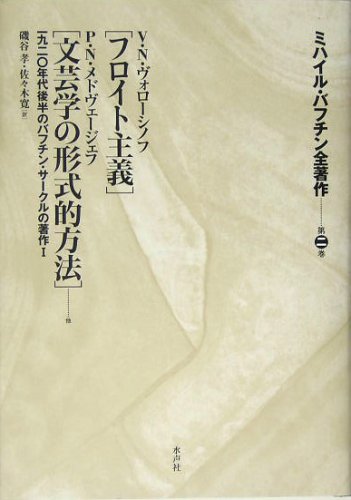 ミハイル・バフチン全著作………第二巻
V・N・ヴォローシノフ
[フロイト主義]
P・N・メドヴェージェフ
[文芸学の形式的方法]………他
一九二〇年代後半のバフチン・サークルの著作Ⅰ
磯谷孝・佐々木寛[訳]
水声社